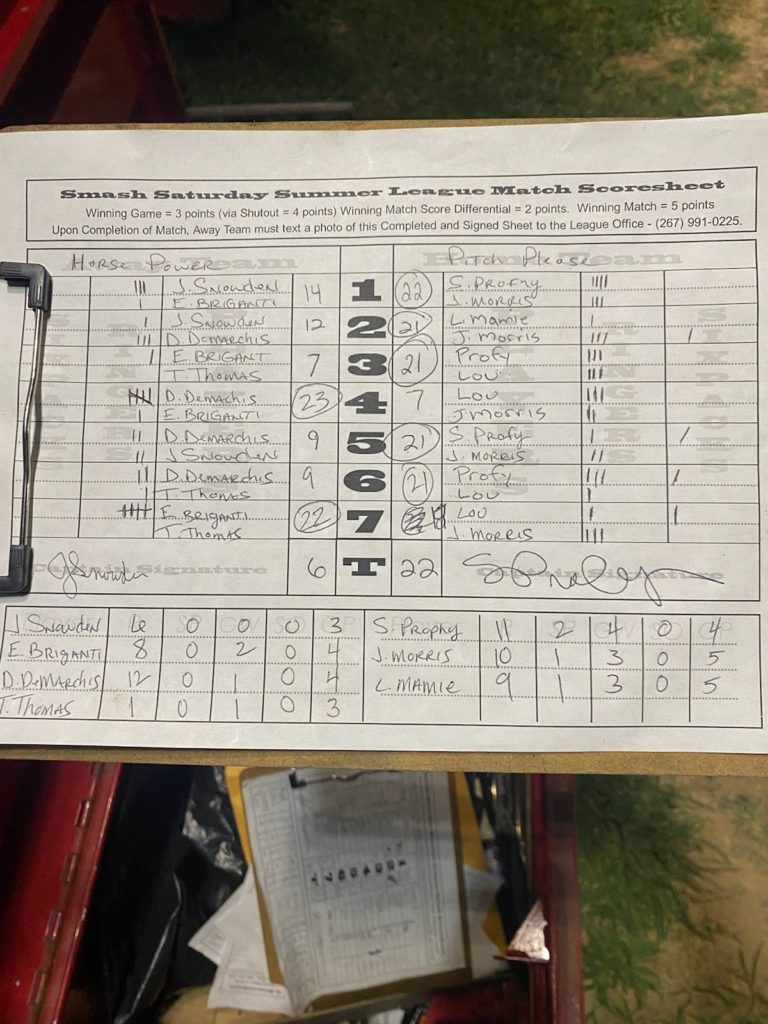 Smash Saturday Summer League Match Scoresheet
Winning Game = 3 points (via Shutout = 4 points) Winning Match Score Differential = 2 points. Winning Match = 5 points
Upon Completion of Match, Away Team must text a photo of this Completed and Signed Sheet to the League Office - (267) 991-0225.
Horse Power Pitch Please
J. Snowden 14 1 22 S. Profny
E. BRIGANTI J. MORRIS
J. Snowden 12 2 21 L. Mamie
D. Demarchis J. Morris
E. BRIGANT 7 3 21 Profy
T. Thomas Lou
D. Demachis 23 4 7 Lou
E. BRIGANTI J Morris
D. DeMARCHIS 9 5 21 S. Profy
J Snowden J. MORRIS
D. DeMARCHIS 9 6 21 Profy
T. Thomas Lou
E. BRIGANTI 22 7 Lou
T. Thomas J. MORRIS
Captain Signature 6 T 22 Captain Signature
J. Snowden 6 0 0 0 3 S. Prophy 11 2 4 0 4
E. BRIGANTI 8 0 2 0 4 J. MORRIS 10 1 3 0 5
D. DeMARCHIS 12 0 1 0 4 L. MAMIE 9 1 3 0 5
T. Thomas 1 0 1 0 3